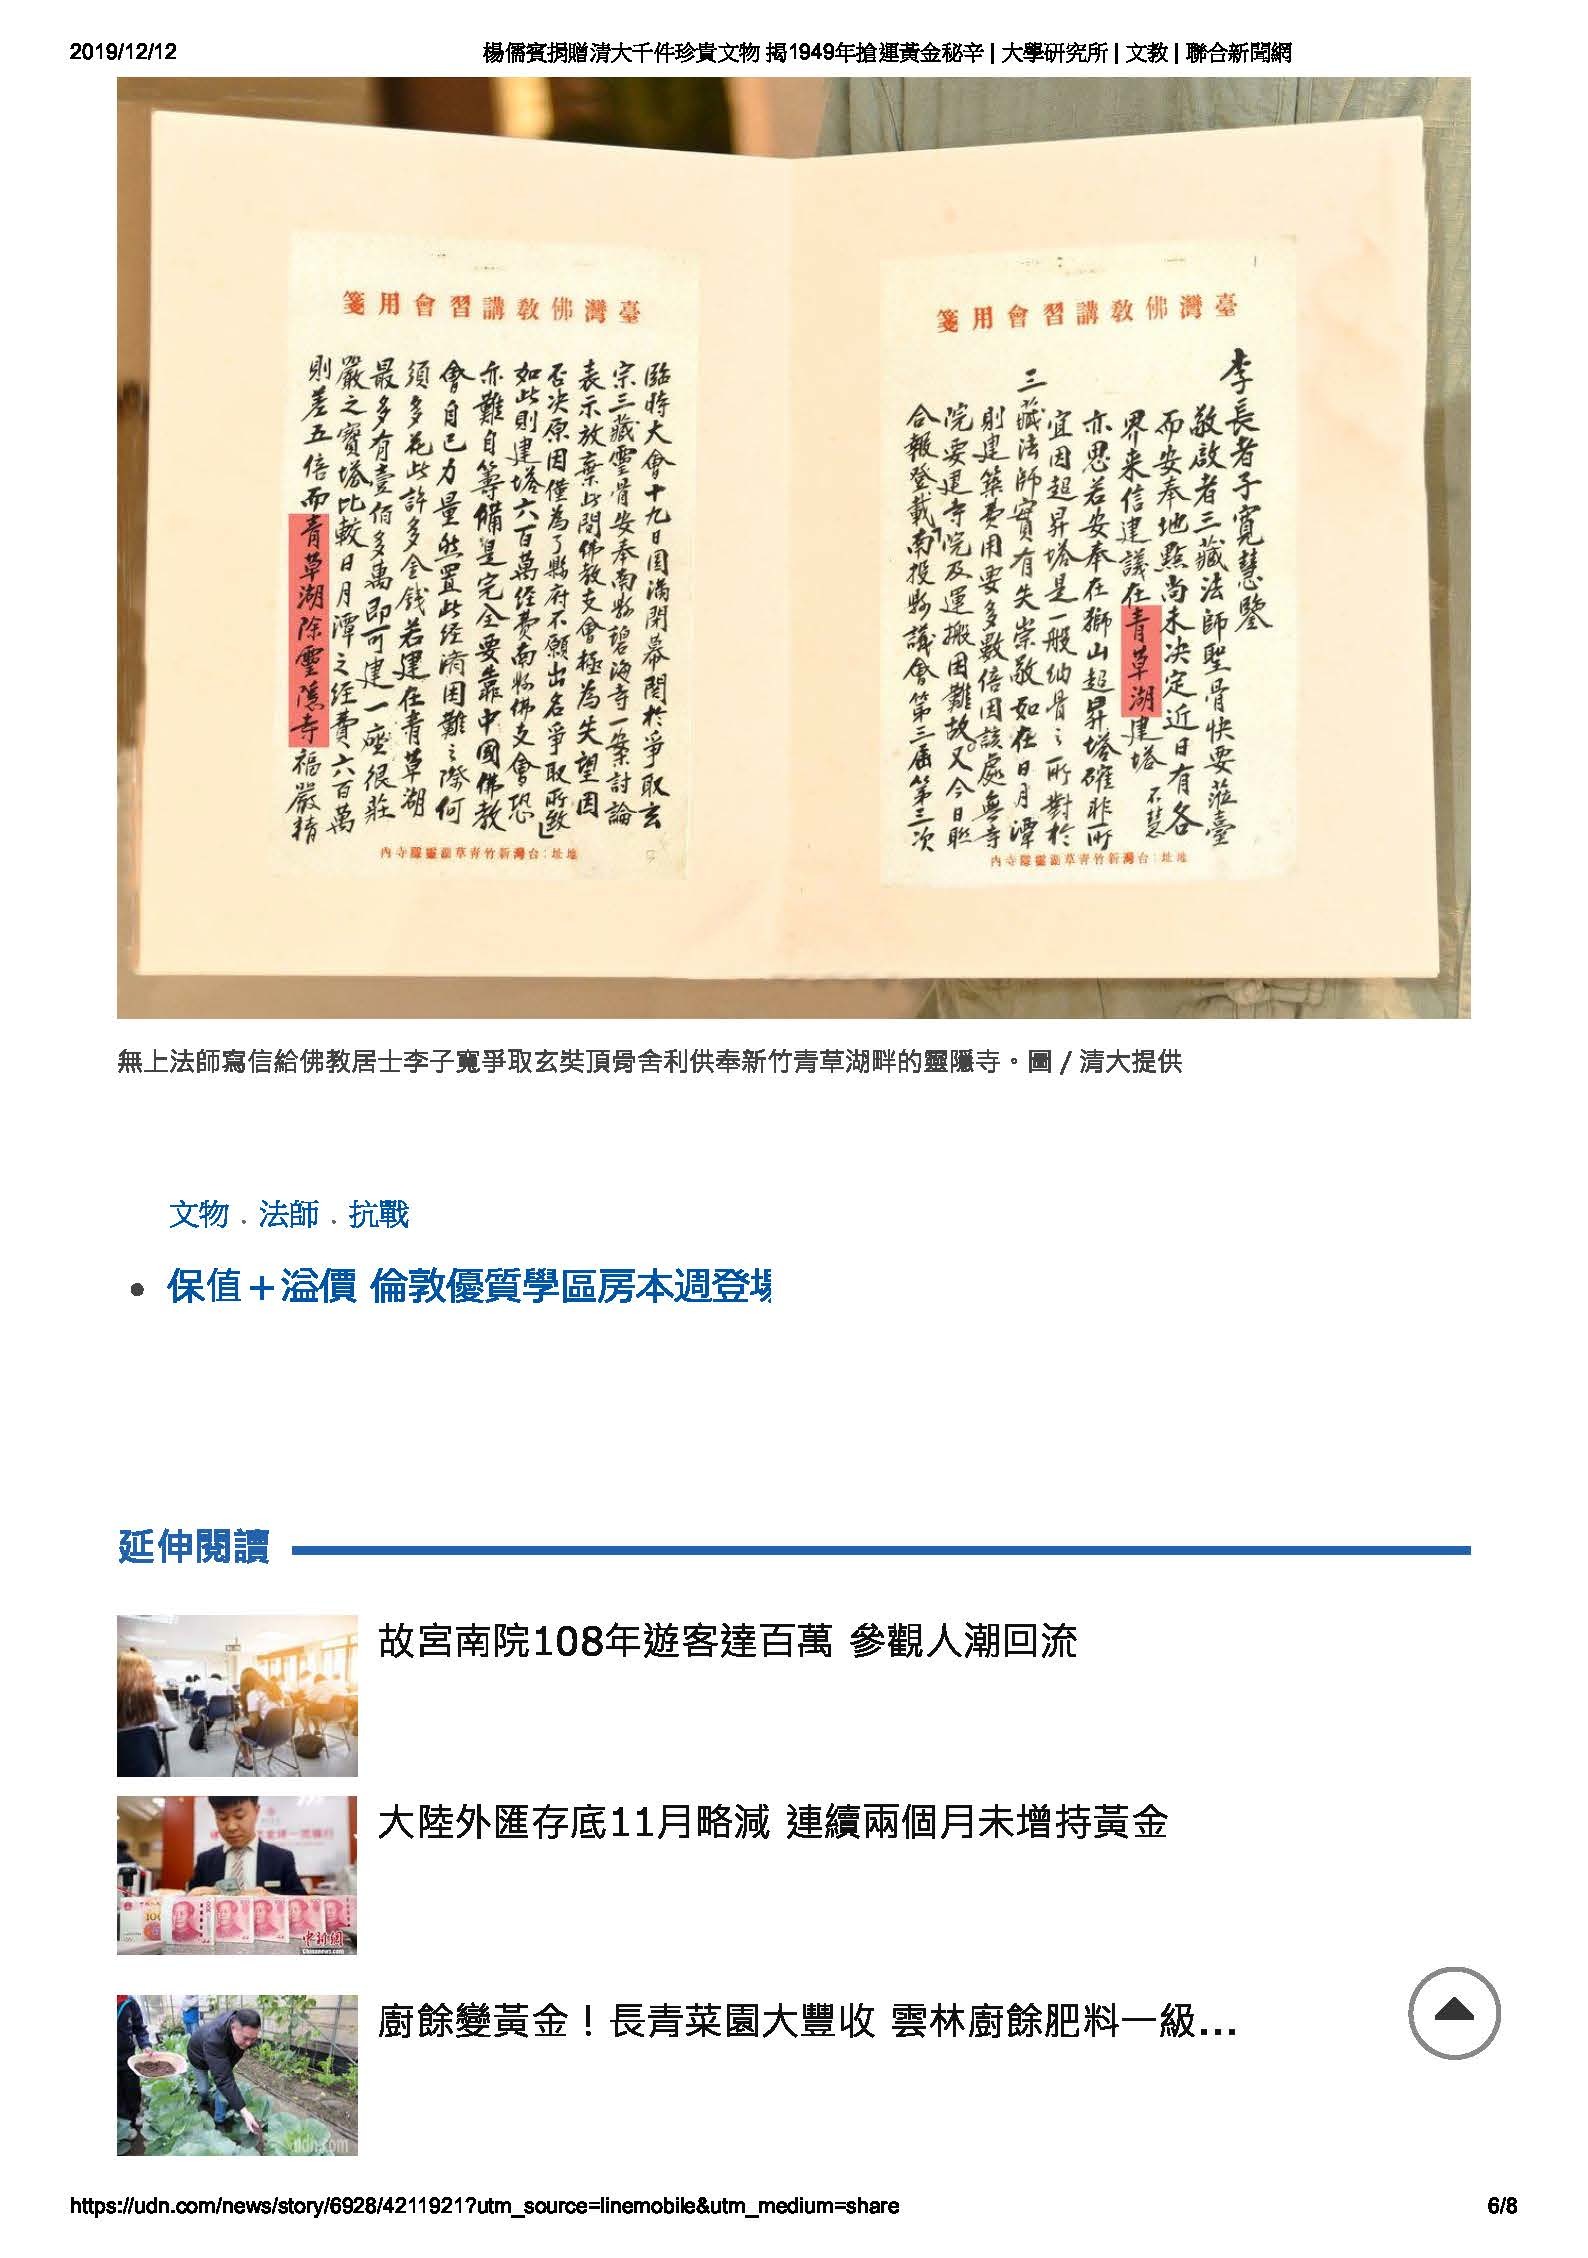 2019/12/12
楊儒賓捐贈清大千件珍貴文物 揭1949年搶運黃金秘辛 | 大學研究所 | 文教 | 聯合新聞網
臺灣佛教講習會用箋
李長者子寬慧鑒
敬啟者三藏法師聖骨快要蒞臺
而安奉地點尚未決定近日有各
界来信建議在青草湖建塔 不慧
亦思若安奉在獅山超昇塔確非所
宜因超昇塔是一般納骨之所對於
三藏法師實有失崇敬如在日月潭
則建築費用要多數倍因該處無寺
院要建寺院及運搬困難故又今日聯
合報登載「南投縣議會第三屆第三次
地址:台灣新竹青草湖靈隱寺內
臺灣佛教講習會用箋
臨時大會十九日圓滿閉幕關於爭取玄
宗三藏靈骨安奉南縣碧海寺一案討論
表示放棄此間佛教支會極為失望因
否決原因僅為了縣府不願出名爭取所致」
如此則建塔六百萬經費南縣佛支會恐
亦難自籌備是完全要靠中國佛教
會自己力量然置此经濟困難之際何
須多花此許多金錢若建在青草湖
最多有壹佰多萬即可建一座很莊
嚴之寶塔比較日月潭之经費六百萬
則差五倍而青草湖除靈隱寺福嚴精
地址:台灣新竹青草湖靈隱寺內
無上法師寫信給佛教居士李子寬爭取玄奘頂骨舍利供奉新竹青草湖畔的靈隱寺。圖／清大提供
文物．法師．抗戰
保值＋溢價 倫敦優質學區房本週登場
延伸閱讀
故宮南院108年遊客達百萬 參觀人潮回流
大陸外匯存底11月略減 連續兩個月未增持黃金
100
中新網
Chinanews.com
廚餘變黃金！長青菜園大豐收 雲林廚餘肥料一級...
udn.com
https://udn.com/news/story/6928/4211921?utm_source=linemobile&utm_medium=share
6/8